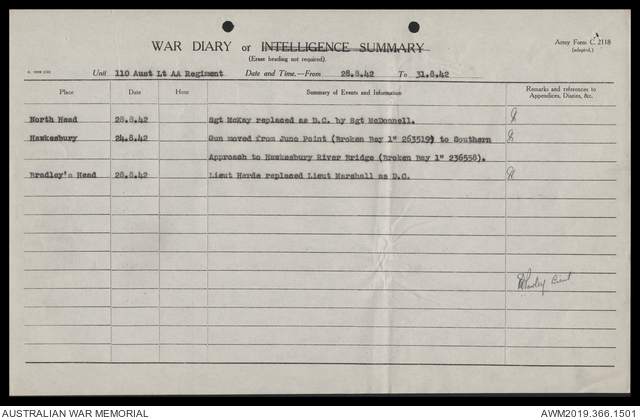 WAR DIARY or INTELLIGENCE SUMMARY
Army Form C. 2118
(adapted.)
(Erase heading not required).
Unit 110 Aust Lt AA Regiment Date and Time.—From 28.8.42 To 31.8.42
Place Date Hour Summary of Events and Information Remarks and references to
Appendices, Diaries, &c.
North Head 28.8.42 Sgt McKay replaced as D.C. by Sgt McDonnell.
Hawkesbury 24.8.42 Gun moved from June Point (Broken Bay 1" 263519) to Southern
Approach to Hawkesbury River Bridge (Broken Bay 1" 236558).
Bradley's Head 28.8.42 Lieut Harde replaced Lieut Marshall as D.C.
AUSTRALIAN WAR MEMORIAL
AWM2019.366.1501